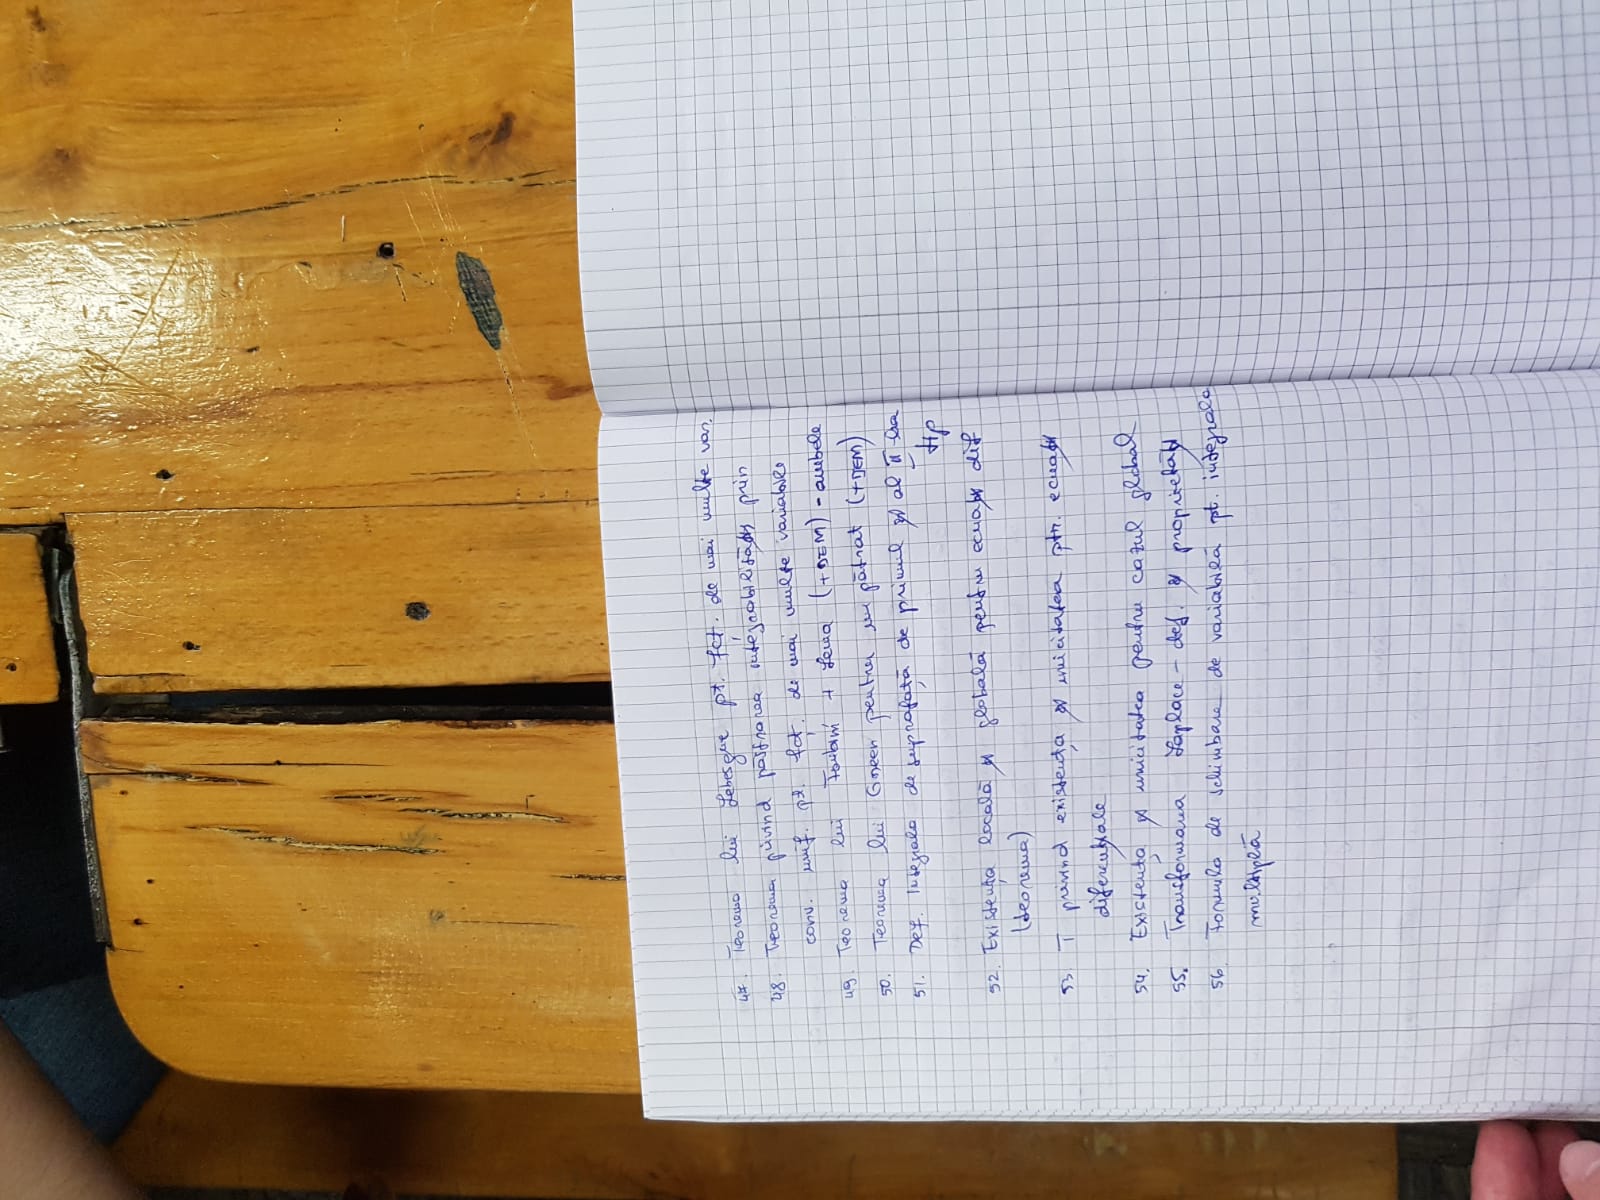 47. Teorema lui Lebesgue pt. fct. de mai multe var.
48. Teorema privind păstrarea integrabilității prin
conv. unif. pt. fct. de mai multe variabile
49. Teorema lui Fubini + Lema (+DEM) - ambele
50. Teorema lui Green pentru un pătrat (+DEM)
51. Def. Integrala de suprafață de primul și al II lea
tip
52. Existența locală și globală pentru ecuații dif
(teorema)
53. T privind existența și unicitatea ptr. ecuații
diferențiale
54. Existența și unicitatea pentru cazul global
55. Transformarea Laplace - def. și proprietăți
56. Formula de schimbare de variabilă pt. integrala
multiplă